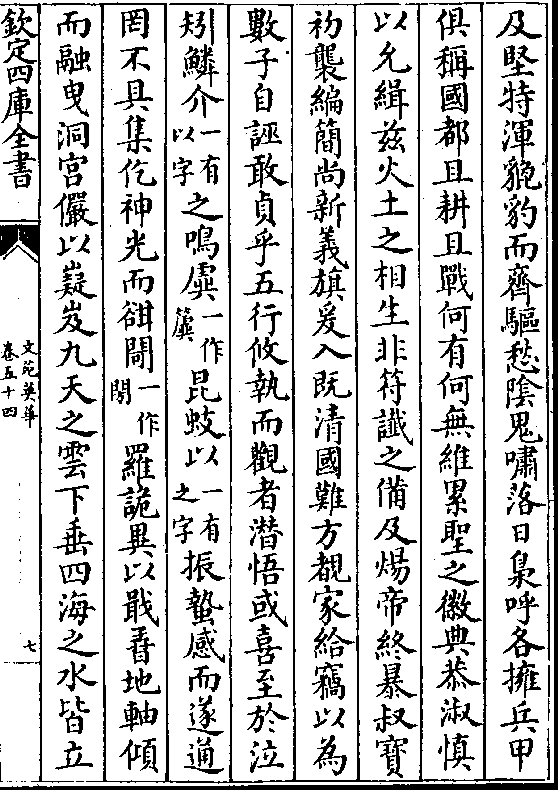 及堅特渾貔豹而齊驅愁陰鬼嘯落日梟呼各擁兵甲
俱稱國都且耕且戰何有何無維累聖之徽典恭淑慎
以允緝兹火土之相生非符讖之備及煬帝終暴叔寳
初襲編簡尚新義旗爰入既清國難方覩家給竊以為
數子自誣敢貞乎五行攸執而觀者潜悟或喜至於泣
矧鱗介一有以字之鳴簴一作簨昆蚑以一有之字振蟄感而遂通
罔不具集仡神光而㟏閜一作閕羅詭異以戢孴地軸傾
而融曳洞宫儼以嶷岌九天之雲下垂四海之水皆立
欽定四庫全書
文苑英華
卷五十四
七